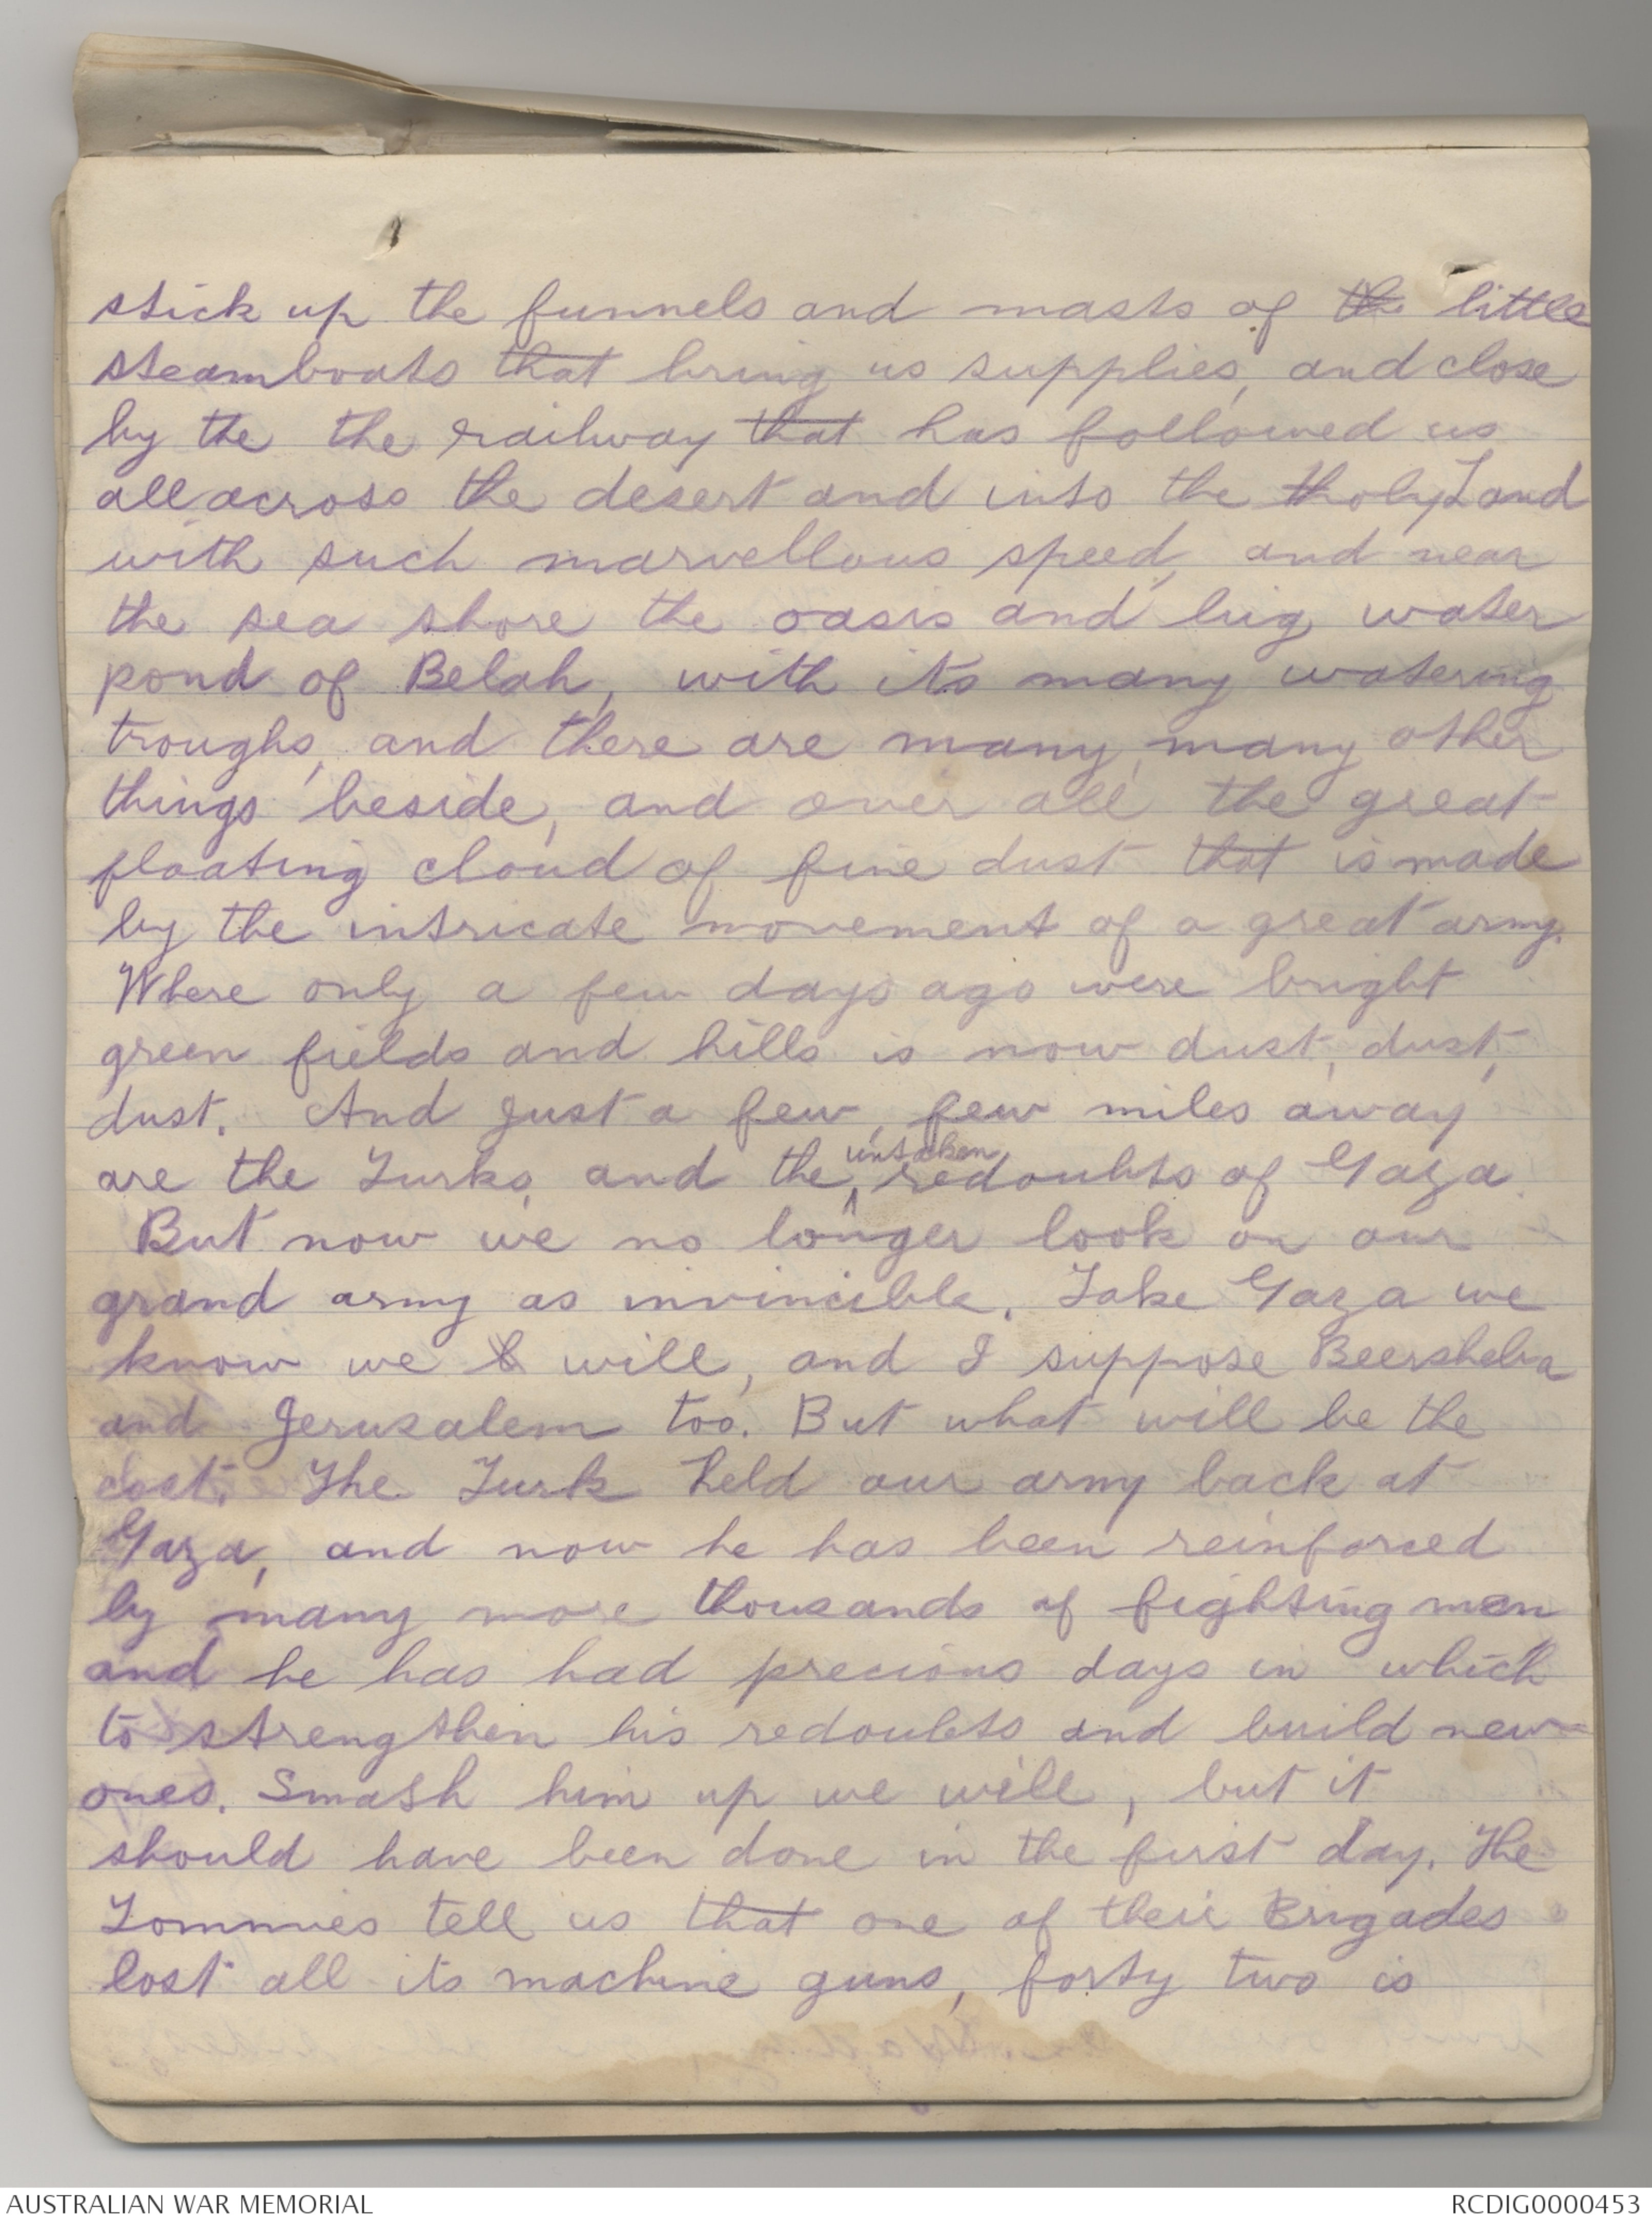 stick up the funnels and masts of the little
steamboats that bring us supplies, and close
by the the railway that has followed us
all across the desert and into the Holy Land
with such marvellous speed, and near
the sea shore the oasis and big water
pond of Belah, with its many watering
troughs, and there are many, many other
things beside, and over all the great
floating cloud of fine dust that is made
by the intricate movement of a great army.
Where only a few days ago were bright
green fields and hills is now dust, dust,
dust. And just a few, few miles away
are the Turks, and the untaken redoubts of Gaza.
But now we no longer look on our
grand army as invincible. Take Gaza we
know we will, and I suppose Beersheba
and Jerusalem too. But what will be the
cost. The Turk held our army back at
Gaza, and now he has been reinforced
by many more thousands of fighting men
and he has had precious days in which
to strengthen his redoubts and build new
ones. Smash him up we will, but it
should have been done in the first day. The
Tommies tell us that one of their Brigades
lost all its machine guns, forty two is
AUSTRALIAN WAR MEMORIAL
RCDIG0000453